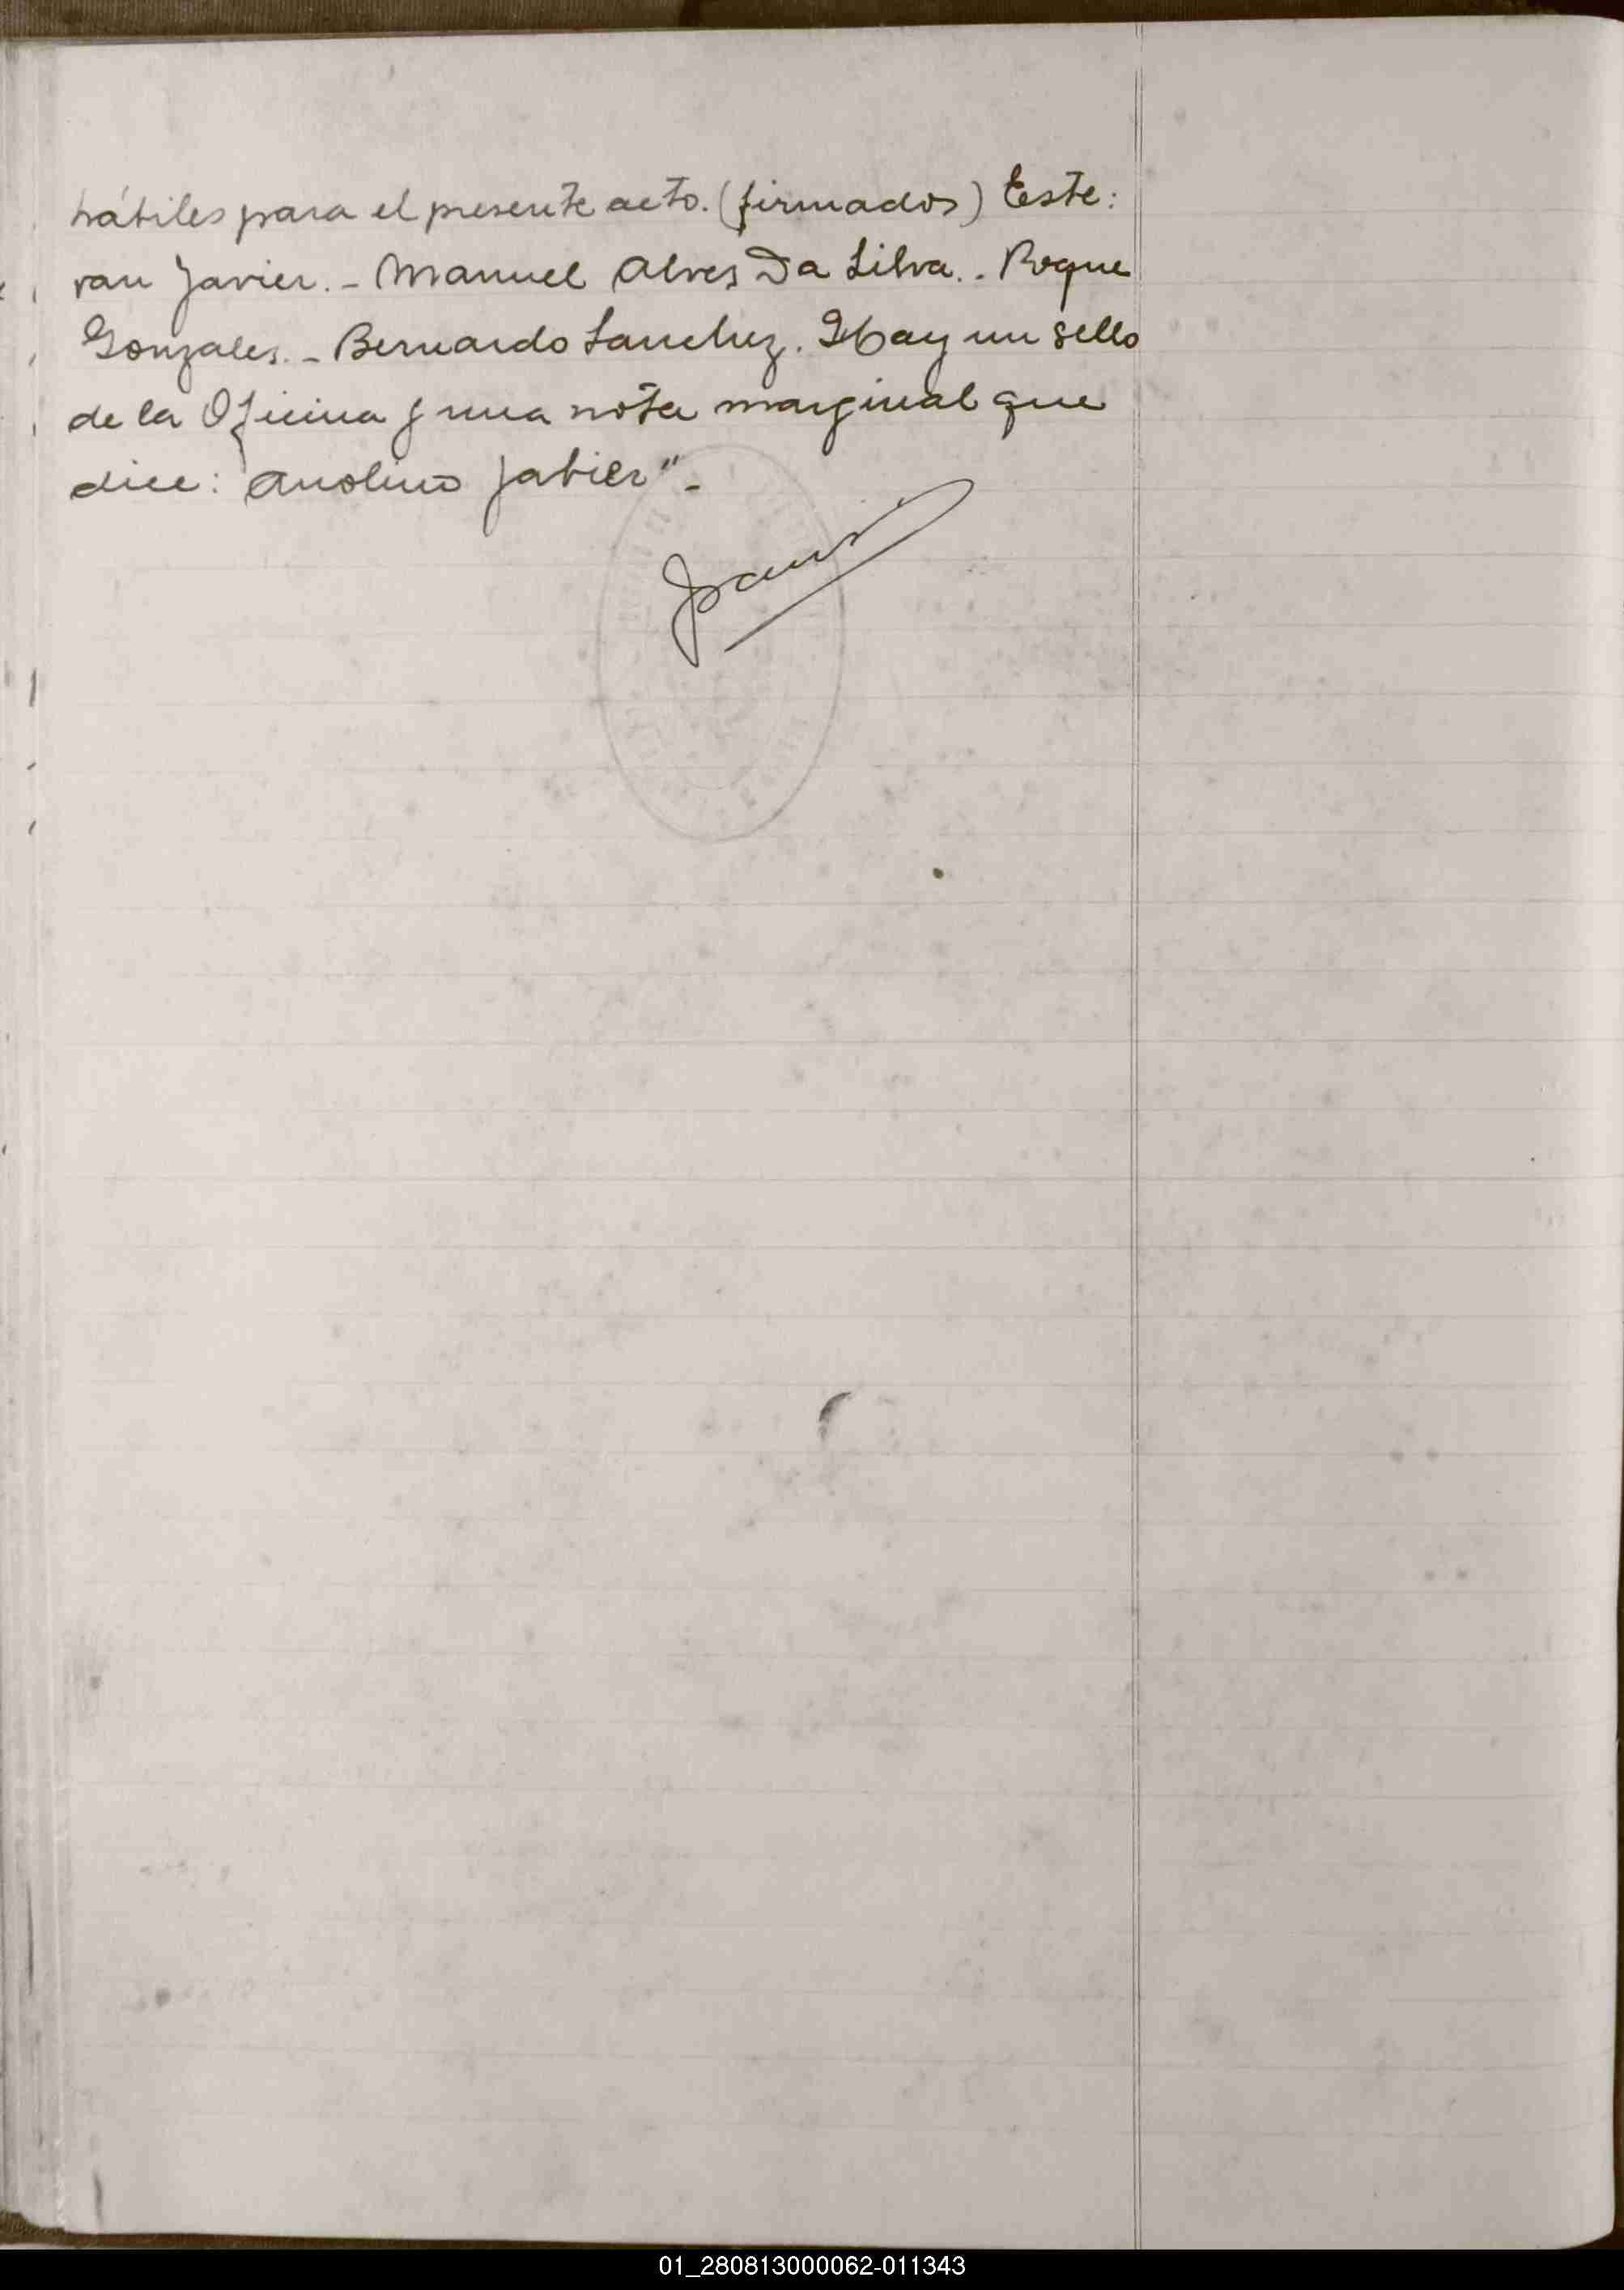 hábiles para el presente acto. (firmados) Este:
van Javier. - Manuel Alves Da Silva. - Roque
Gonzales. - Bernardo Sanchez. Hay un sello
de la Oficina y una nota marginal que
dice: Anolino Jabier" -
01_280813000062-011343